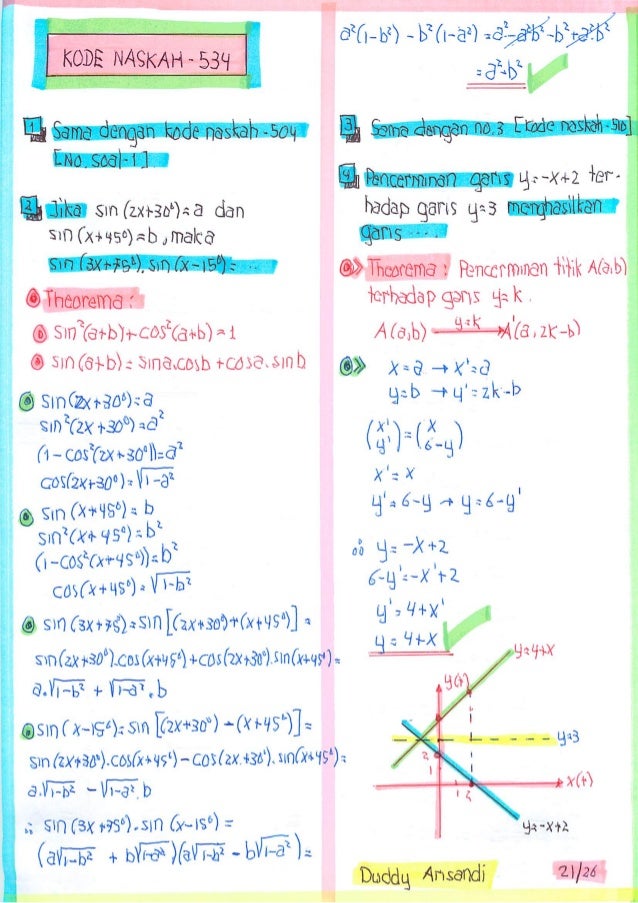 KODE NASKAH - 534
1 Sama dengan kode naskah-504
[No. soal-1]
2 Jika sin (2x+30°)=a dan
sin (x+45°)=b, maka
sin (3x+75°). sin (x-15°)= ....
Theorema :
sin²(a+b)+cos²(a+b)=1
sin (a+b)= sina.cosb +cosa.sinb
sin(2x+30°)=a
sin²(2x+30°)=a²
(1-cos²(2x+30°))=a²
cos(2x+30°)=√1-a²
sin (x+45°)= b
sin²(x+45°)=b²
(1-cos²(x+45°))=b²
cos(x+45°)=√1-b²
sin (3x+75°)=sin [(2x+30°)+(x+45°)] =
sin(2x+30°).cos(x+45°)+cos(2x+30°).sin(x+45°)=
a.√1-b² + √1-a².b
sin(x-15°)= sin [(2x+30°)-(x+45°)]=
sin (2x+30°).cos(x+45°)-cos(2x+30°).sin(x+45°)=
a.√1-b² - √1-a².b
∴ sin (3x+75°).sin (x-15°) =
(a√1-b² + b√1-a²)(a√1-b² - b√1-a²)=
a²(1-b²)-b²(1-a²)=a²-a²b²-b²+a²b²
=a²-b²
3 Sama dengan no.3 [kode naskah-510]
4 Pencerminan garis y=-x+2 ter-
hadap garis y=3 menghasilkan
garis ....
Theorema : Pencerminan titik A(a,b)
terhadap garis y=k.
A(a,b) y=k A'(a,2k-b)
x=a → x'=a
y=b → y'=2k-b
(x' y')=(x 6-y)
x'=x
y'=6-y → y=6-y'
∴ y=-x+2
6-y'=-x'+2
y'=4+x'
y=4+x
y=4+x
y(+)
y=3
2
1
1 2
x(+)
y=-x+2
Duddy Arisandi
21/26